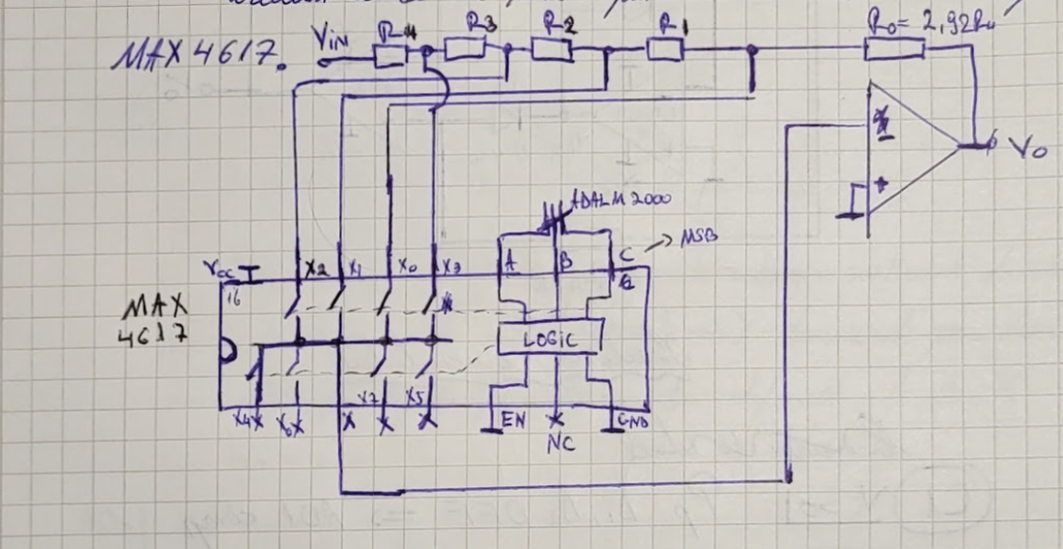 MAX 4617.
Vin
R4
R3
R2
R1
R0 = 2,92R4
Vo
+
ADALM2000
A
B
C
→ MSB
Vcc
16
X2
X1
X0
X3
MAX
4617
LOGIC
X4
X6
X
X7
X5
EN
NC
GND